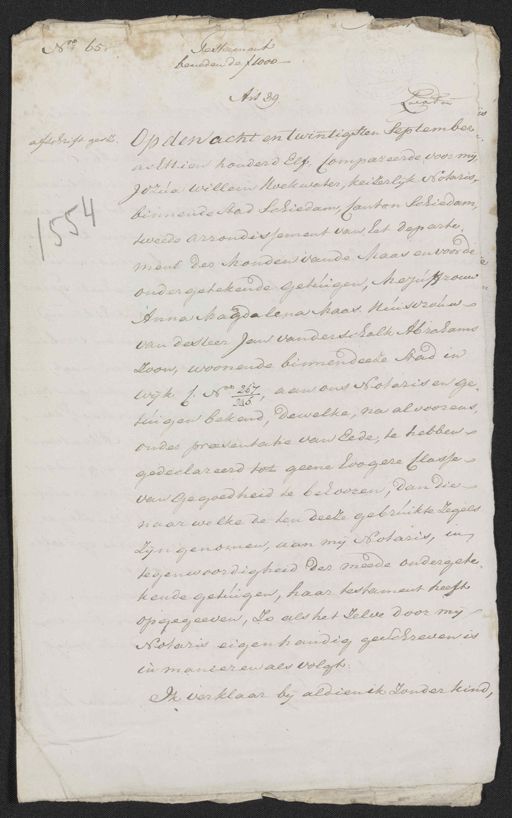 No 65.
Testament
beneden de ƒ1000-
Art 39
afschrift gest.
1554
Op den acht en twintigsten September
achttien honderd Elf, Compareerde voor mij
Jozúa Willem Hoekwater, Keizerlijk Notaris,
binnen de stad Schiedam, Canton Schiedam,
tweede arrondissement van het departe-
ment der Monden van de Maas en voorde
ondergetekende getuigen, Mejuffrouw
Anna Magdalena Maas, Húisvroúw
van de Heer Jan van der Schalk Abrahams
Zoon, woonende binnen deeze stad in
wijk f. No 267/245, aan ons Notaris en ge-
tuigen bekend, Dewelke, na alvoorens,
onder praesentatie van Eede, te hebben
gedeclareerd tot geene hoogere Classe
van gegoedheid te behooren, dan die
naar welke de ten deeze gebruikte Zegels
zijn genomen, aan mij Notaris, in
tegenwoordigheid der meede ondergete-
kende getuigen, haar testament heeft
opgegeeven, zo als het zelve door mij
Notaris eigenhandig geschreven is
in manieren als volgt.
Ik verklaar bij aldien ik zonder kind,